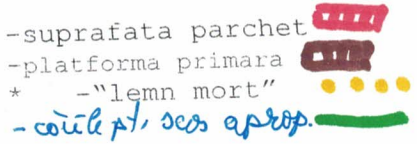 -suprafata parchet
-platforma primara
* -"lemn mort"
-cotile pt, scos aprop.